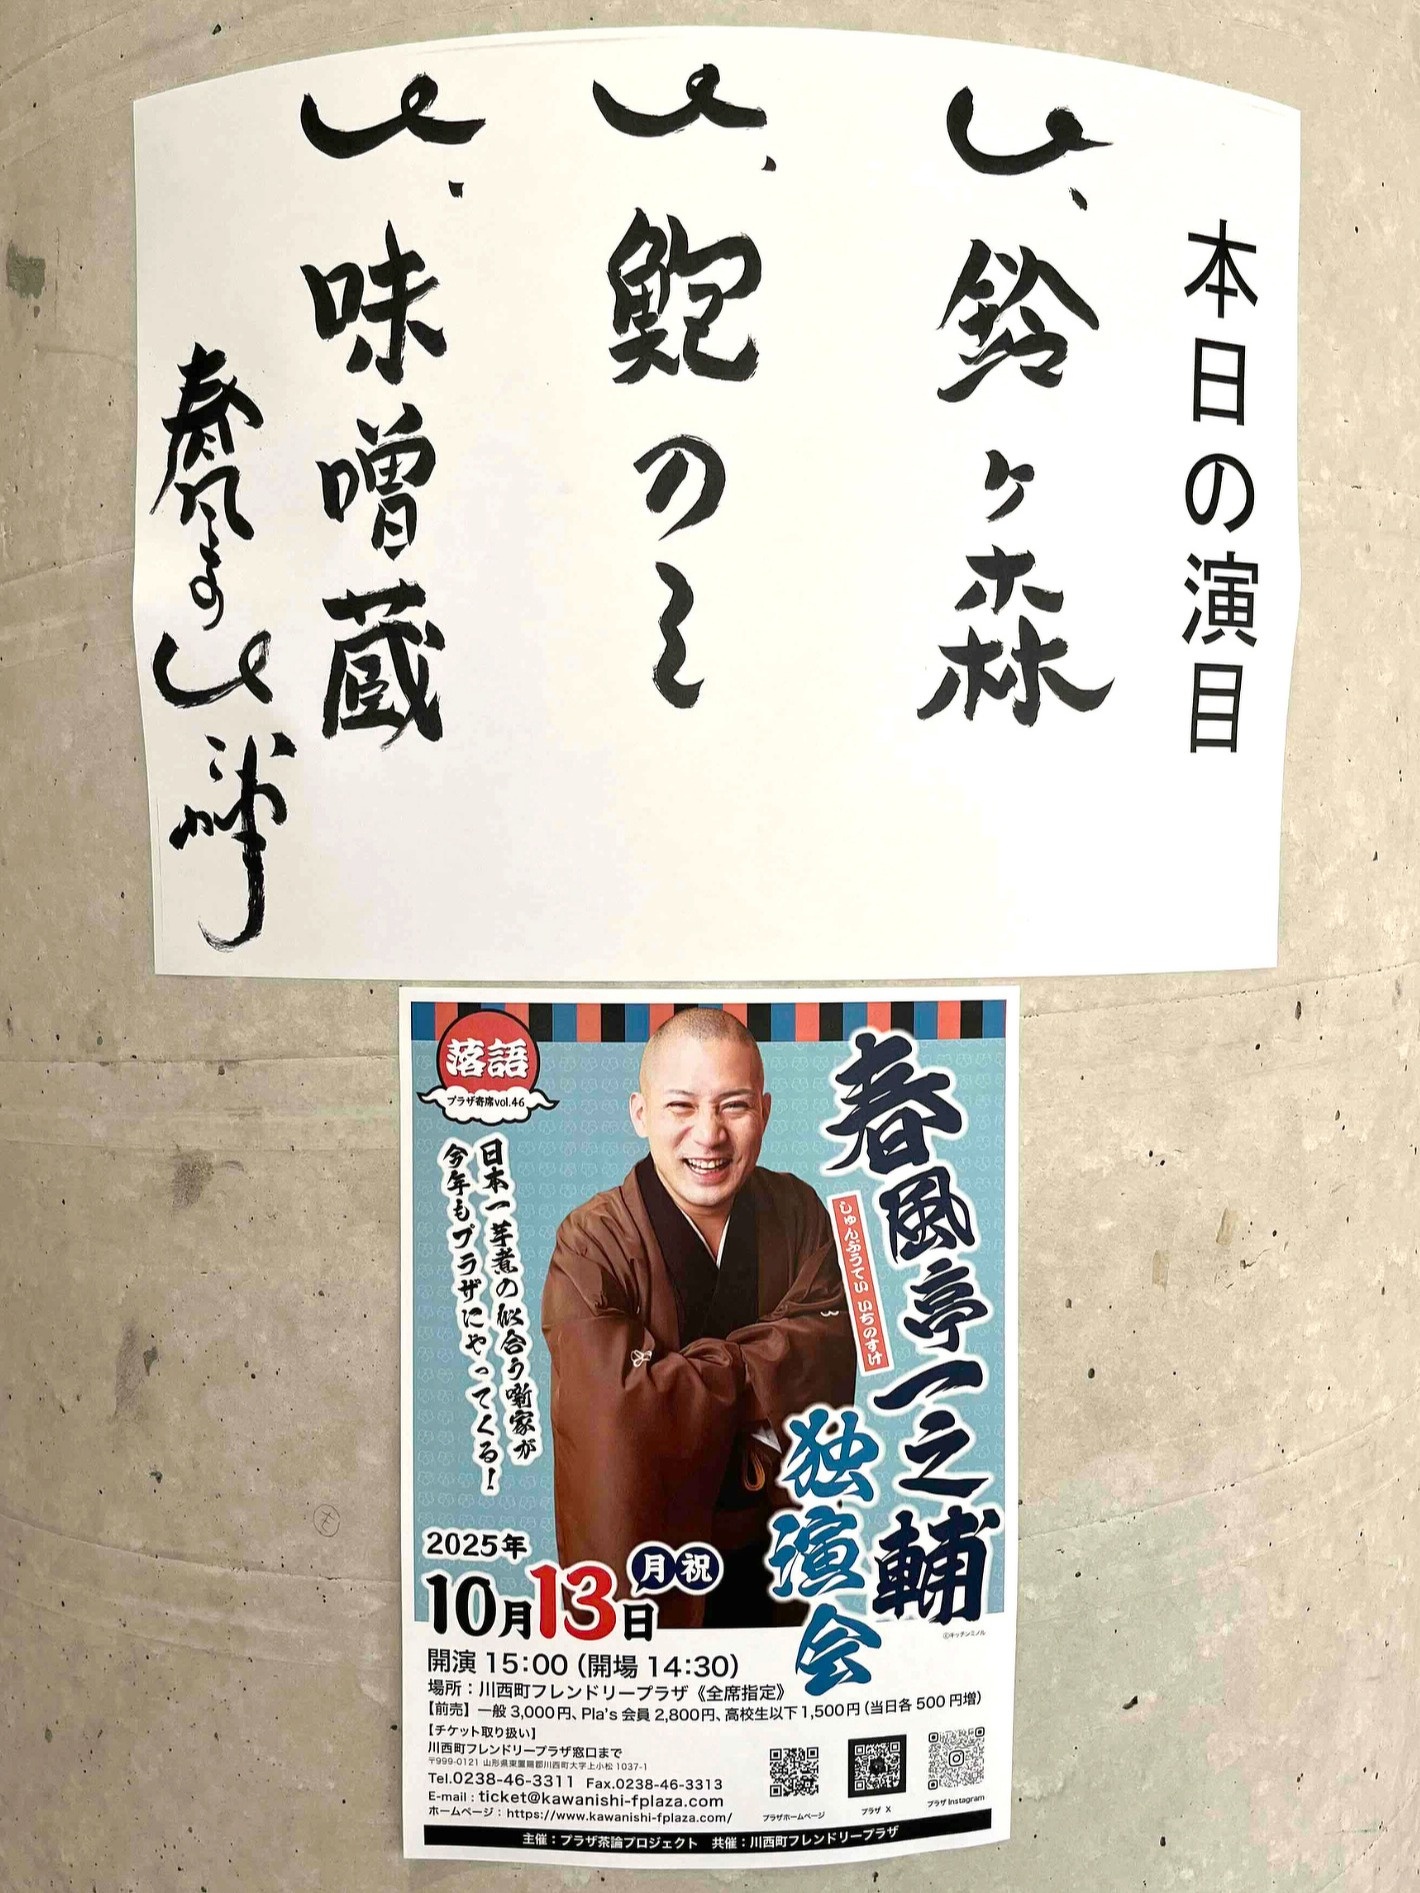 本日の演目
一、鈴ヶ森
一、鮑のし
一、味噌蔵
春風亭一之輔
落語
プラザ寄席vol.46
春風亭一之輔
しゅんぷうてい いちのすけ
独演会
日本一芋煮の似合う噺家が
今年もプラザにやってくる!
2025年
10月13日
月祝
©キッチンミノル
開演 15:00(開場 14:30)
場所:川西町フレンドリープラザ《全席指定》
【前売】一般 3,000円、Pla's 会員 2,800円、高校生以下 1,500円(当日各 500 円増)
【チケット取り扱い】
川西町フレンドリープラザ窓口まで
〒999-0121 山形県東置賜郡川西町大字上小松 1037-1
Tel.0238-46-3311 Fax.0238-46-3313
E-mail : ticket@kawanishi-fplaza.com
ホームページ : https://www.kawanishi-fplaza.com/
プラザホームページ
プラザ X
プラザ Instagram
主催:プラザ茶論プロジェクト 共催:川西町フレンドリープラザ